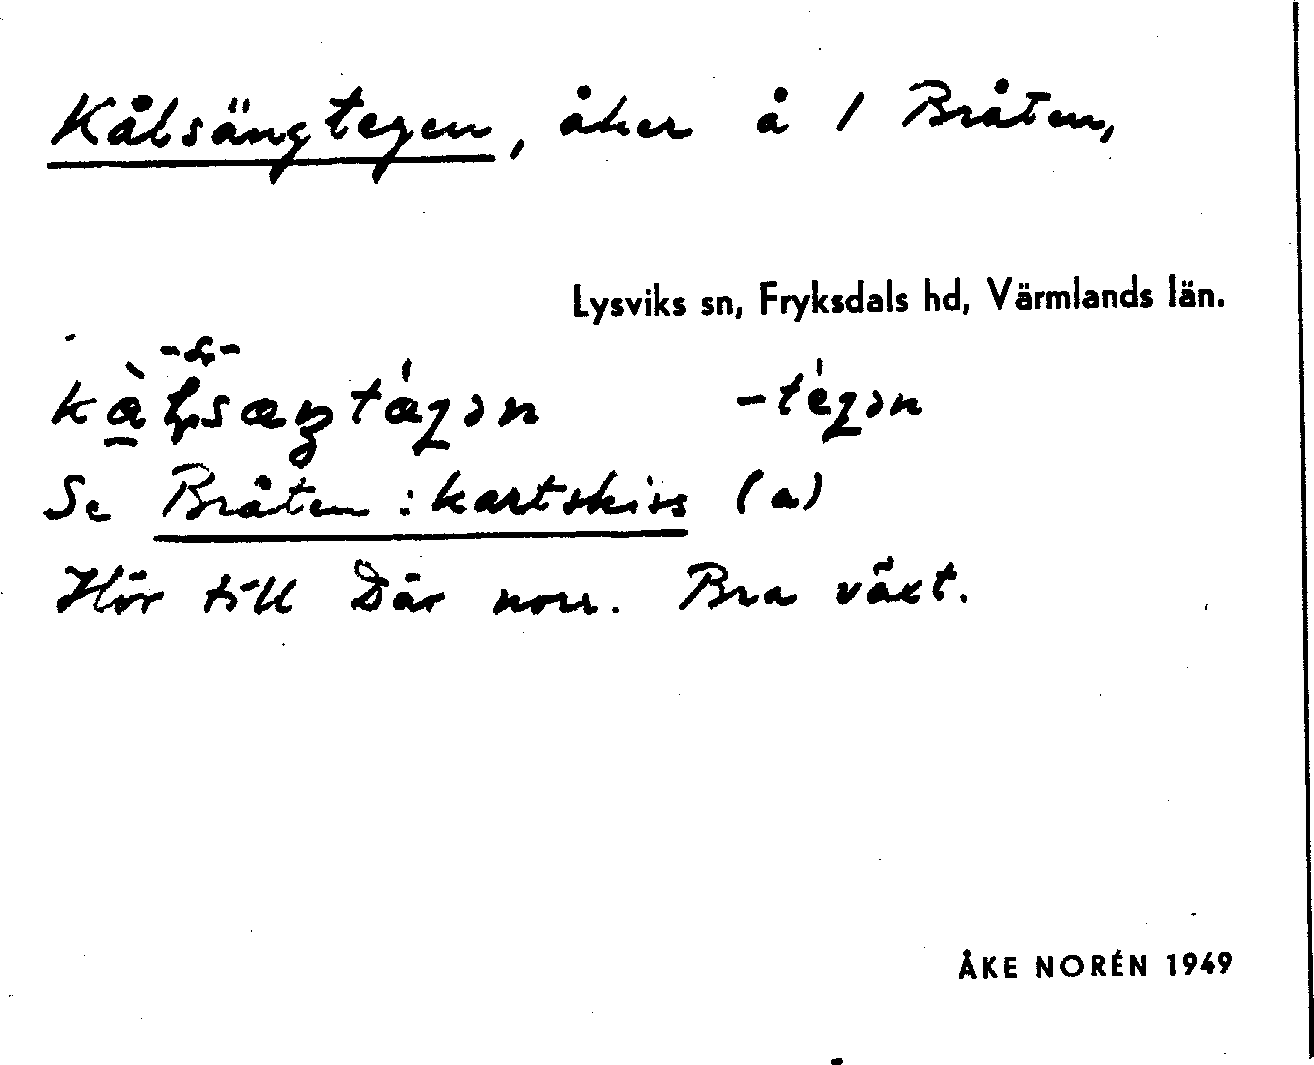 Kålsängtegen, åker å 1 Bråten,
Lysviks sn, Fryksdals hd, Värmlands län.
Se Bråten : kartskiss (a)
Hör till Där norr. Bra växt.
ÅKE NORÉN 1949